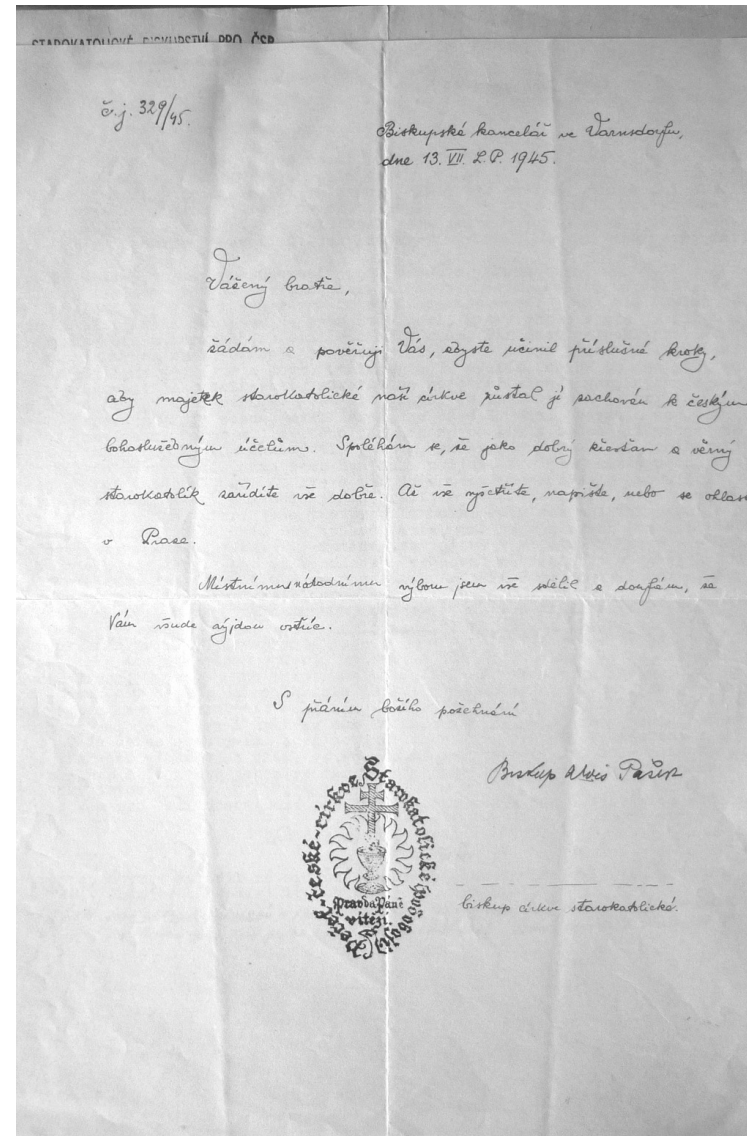 STAROKATOLICKÉ BISKUPSTVÍ PRO ČSR
č.j. 329/45.
Biskupské kancelář ve Varnsdorfu,
dne 13. VII. L.P. 1945.
Vážený bratře,
žádám a pověřuji Vás, abyste učinil příslušné kroky,
aby majetek starokatolické naší církve zůstal jí zachován k českým
bohoslužebným účelům. Spoléhám se, že jako dobrý křesťan a věrný
starokatolík zařídíte vše dobře. Až vše vyřídíte, napište, nebo se ohlas
v Praze.
Místnímu národnímu výboru jsem vše sdělil a doufám, že
Vám všude vyjdou vstříc.
S přáním božího požehnání
Biskup Alois Pašek
Pečeť české církve Starokatolické
Pravda Páně
vítězí.
biskup církve starokatolické.